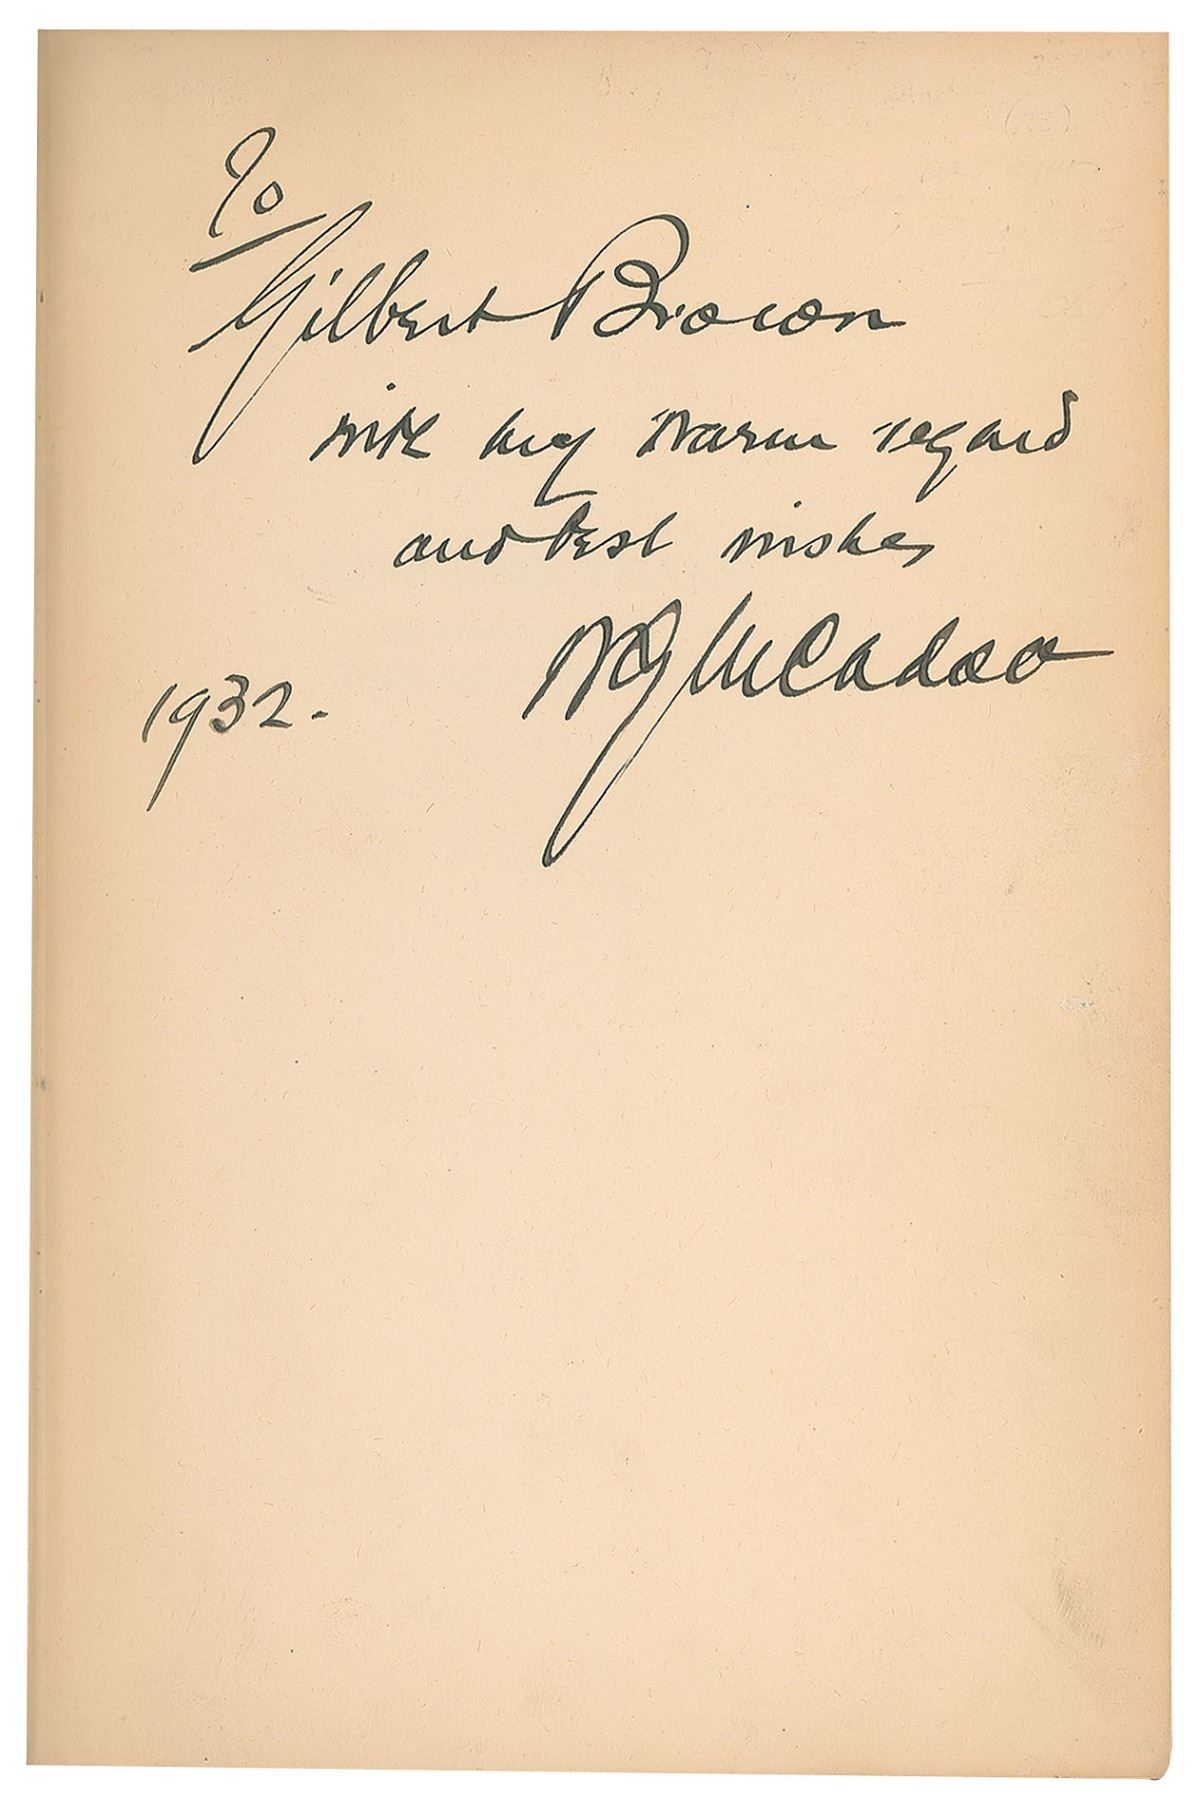 To
Gilbert Brown
with my warm regard
and best wishes
WG McAdoo
1932.